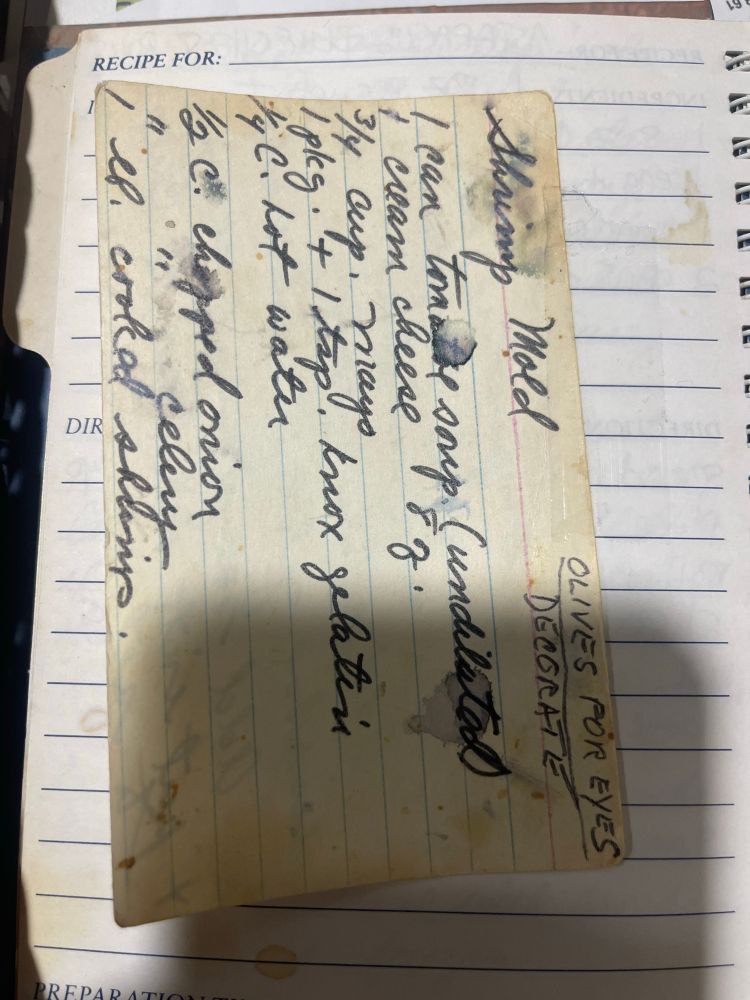 RECIPE FOR:
OLIVES FOR EYES
DECORATE
Shrimp Mold
1 can tomato soup (undiluted)
1 cream cheese 8 oz.
3/4 cup. mayo
1 pkg. + 1 tsp. knox gelatin
1/4 C. hot water
1/2 C. chopped onion
" " Celery
1 lb. cooked shrimp.
DIR
PREPARATION